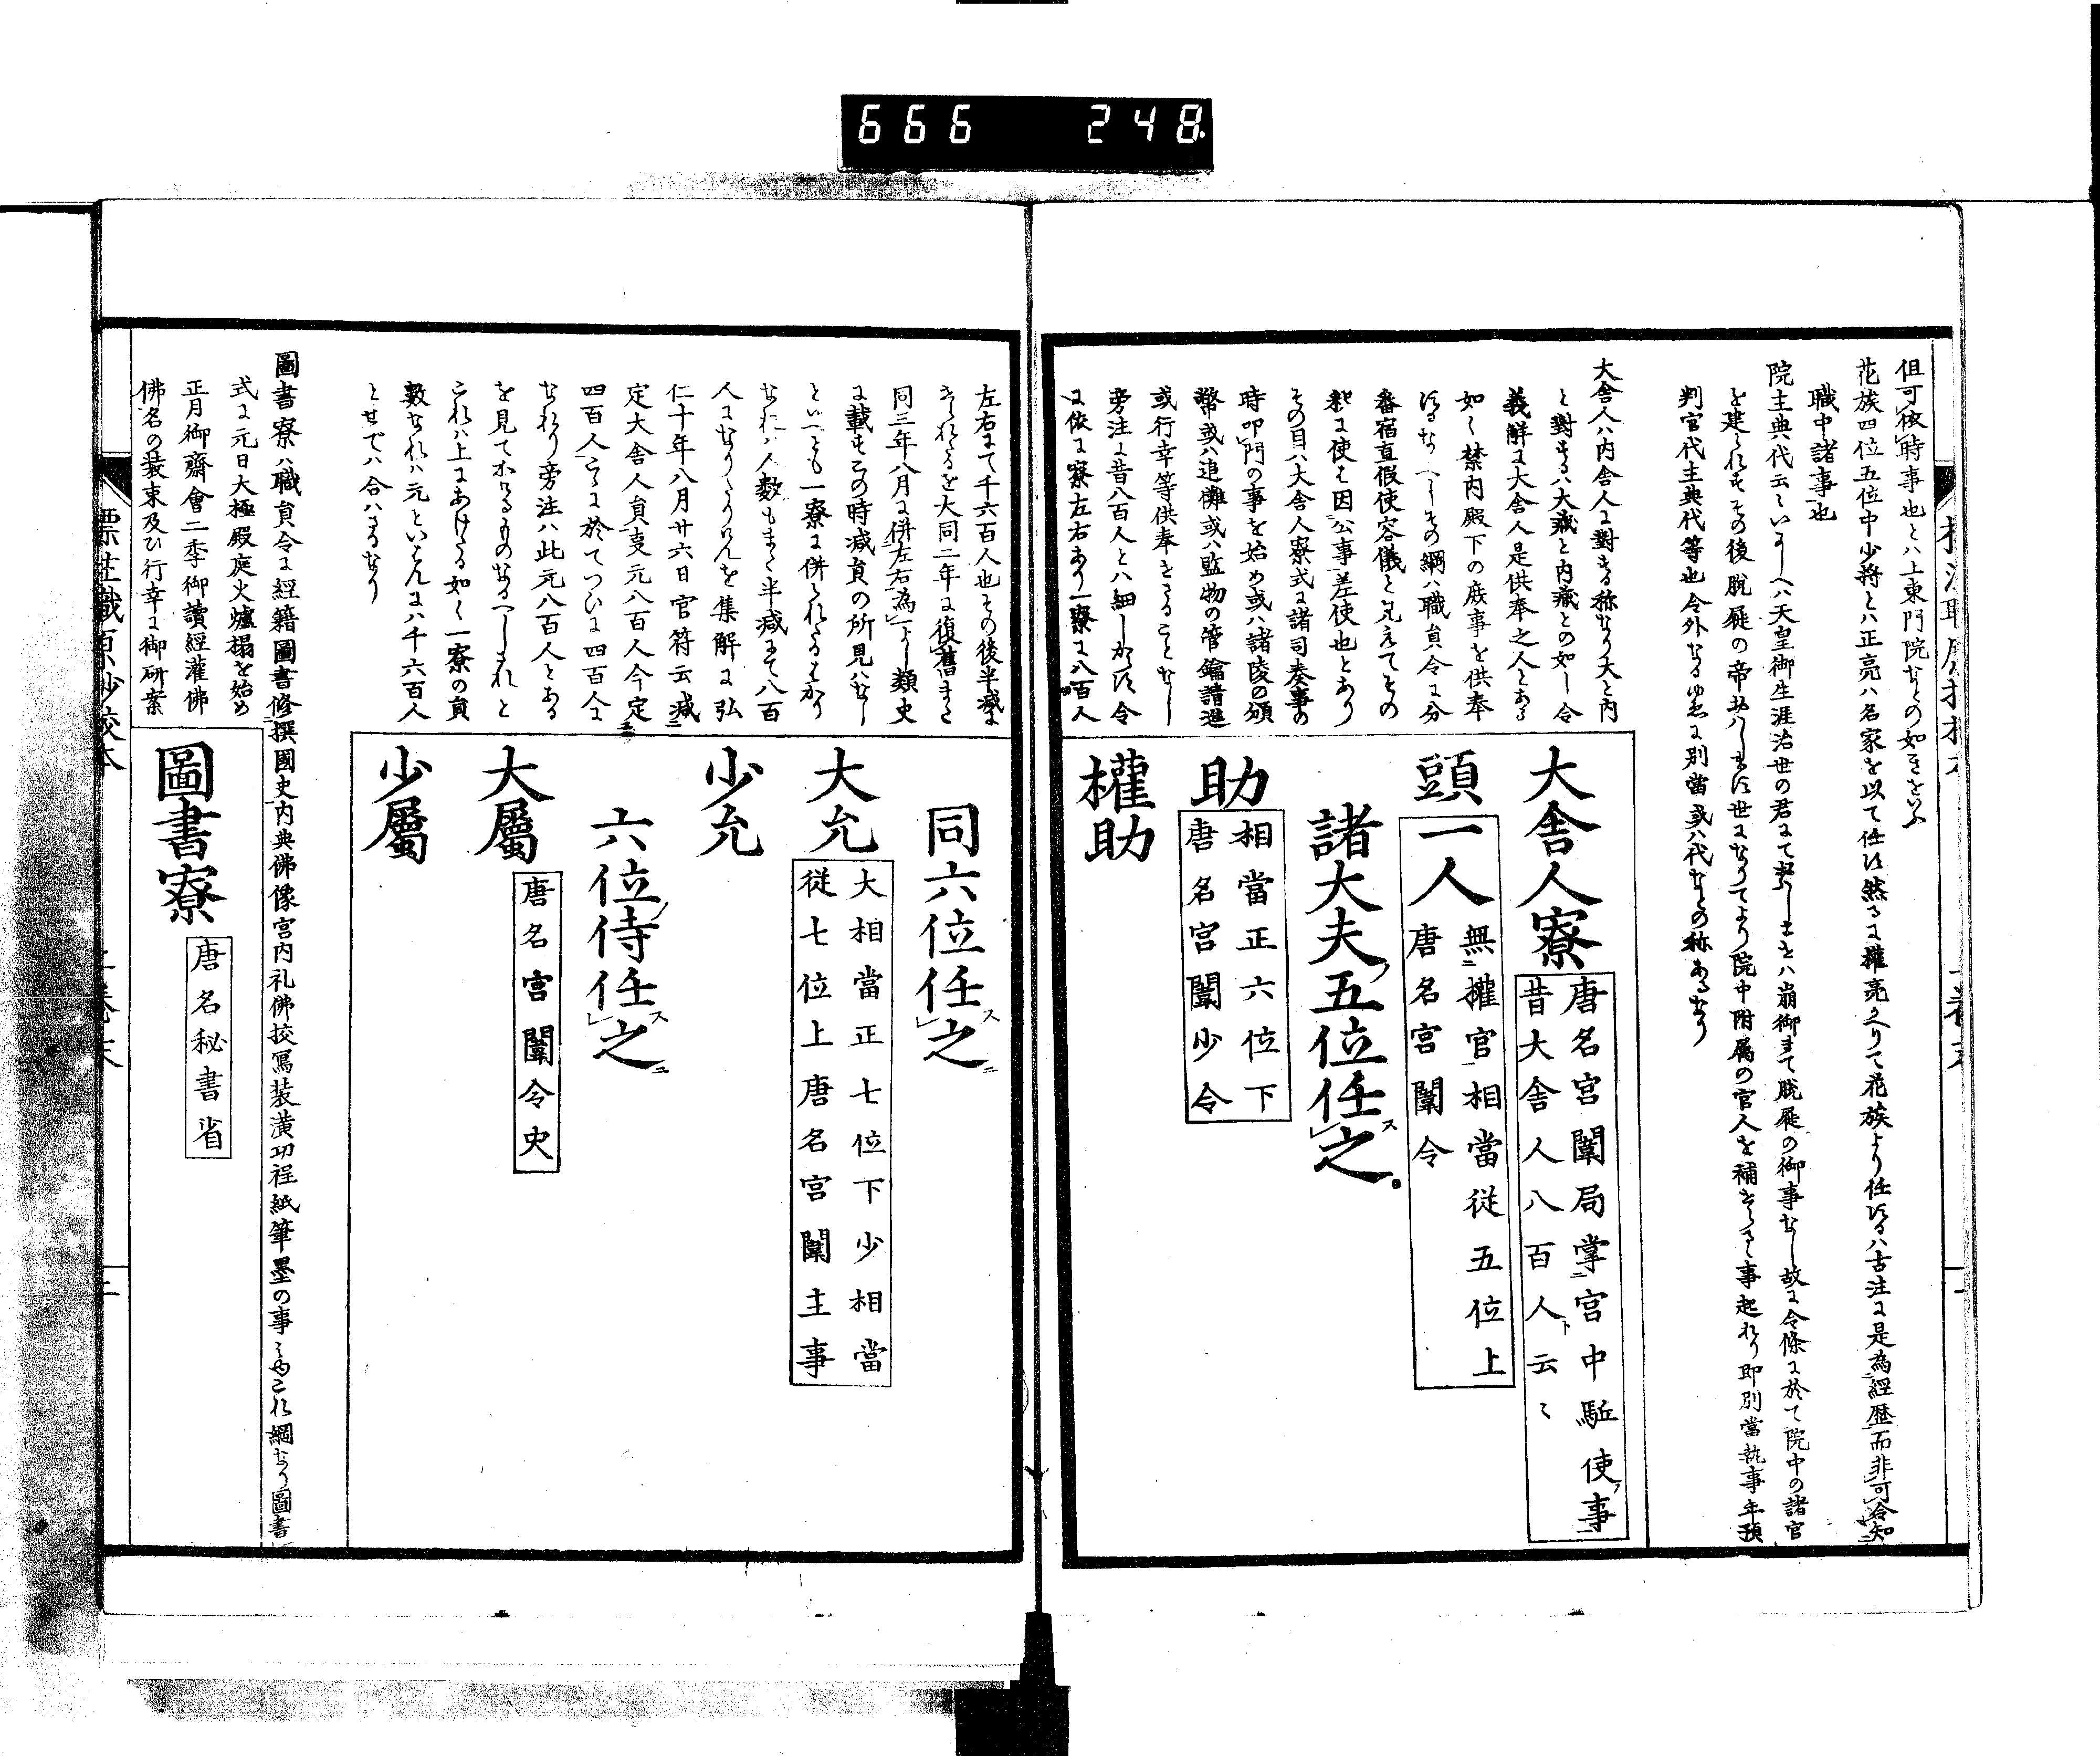 666 248
但可依時事也とハ上東門院なとの如きをいふ
花族四位五位中少將とハ正亮ハ名家を以て任は然るに權亮かへりて花族より任はるハ古注に是為經歴而非可令知
職中諸事也
院主典代云々いにしへハ天皇御生涯治世の君にて
ハ崩御まて脱屣の御事なし故に令條に於て院中の諸官
を建られすその後脱屣の帝
世になりてより院中附屬の官人を補
事起れり即別當執事年預
判官代主典代等也令外なるゆゑに別當或ハ代なとの称あるなり
大舎人ハ内舎人に對する称なり大と内
と對するハ大藏と内藏との如し令
義解に大舎人是供奉之人とある
如く禁内殿下の庶事を供奉
はるなへしその綱ハ職員令に分
番宿直假使容儀と見えてその
釈に使は因公事差使也とあり
その目ハ大舎人寮式に諸司奏事の
時叩門の事を始め或ハ諸陵の頒
幣或ハ追儺或ハ監物の管鑰請進
或行幸等供奉せさることなし
旁注に昔八百人とハ細しからは令
に依に寮左右あり一寮に八百人
大舎人寮
唐名宮闈局掌宮中駈使事
昔大舎人八百人云々
頭一人
無權官相當従五位上
唐名宮闈令
諸大夫五位任之
助
相當正六位下
唐名宮闈少令
權助
左右にて千六百人也その後半減に
せられたるを大同二年に復舊また
同三年八月に併左右為一よし類史
に載すこの時減員の所見ハなし
といへとも一寮に併られたるはかり
なれハ人数もまた半減にて八百
人になりたりけんを集解に弘
仁十年八月廿六日官符云減
定大舎人員事元八百人今定
四百人云々に於てつひに四百人に
なれり旁注ハ此元八百人とある
を見て
ものなるへしされと
これハ上にあけたる如く一寮の員
數なれハ元といはんにハ千六百人
とせでハ合ハさるなり
同六位任之
大允
大相當正七位下少相當
従七位上唐名宮闈主事
少允
六位侍任之
大屬
唐名宮闈令史
少屬
圖書寮ハ職員令に經籍圖書修撰國史内典佛像宮内礼佛挍寫装潢功程紙筆墨の事
これ綱なり圖書
式に元日大極殿庭火爐榻を始め
正月御齋會二季御讀經灌佛
佛名の装束及ひ行幸に御研案
圖書寮
唐名秘書省
標註職原抄校本